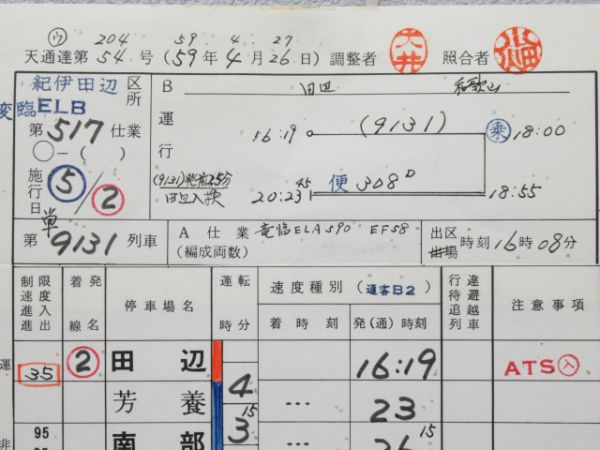 ウ 204 59. 4. 27
天通達第54号(59年4月26日) 調整者 大井 照合者
紀伊田辺 区所
変臨ELB
第517仕業
○-( )
施行日 5/2
B 田辺 和歌山
運行
16:19 (9131) 乗 18:00
(9131)発前25分
田辺入換
20:23 45 便 308D 18:55
単
第9131列車
A 仕業 ELA590 EF58
(編成両数)
出区 出場 時刻16時08分
制限速度 進入進出 着発線名 停車場名 運転時分 速度種別(通客B2) 行違待避追越列車 注意事項
着時刻 発(通)時刻
運 35 2 田辺 16:19 ATS入
4
芳養 … 23
15
3
非 95 南部 … 26 15